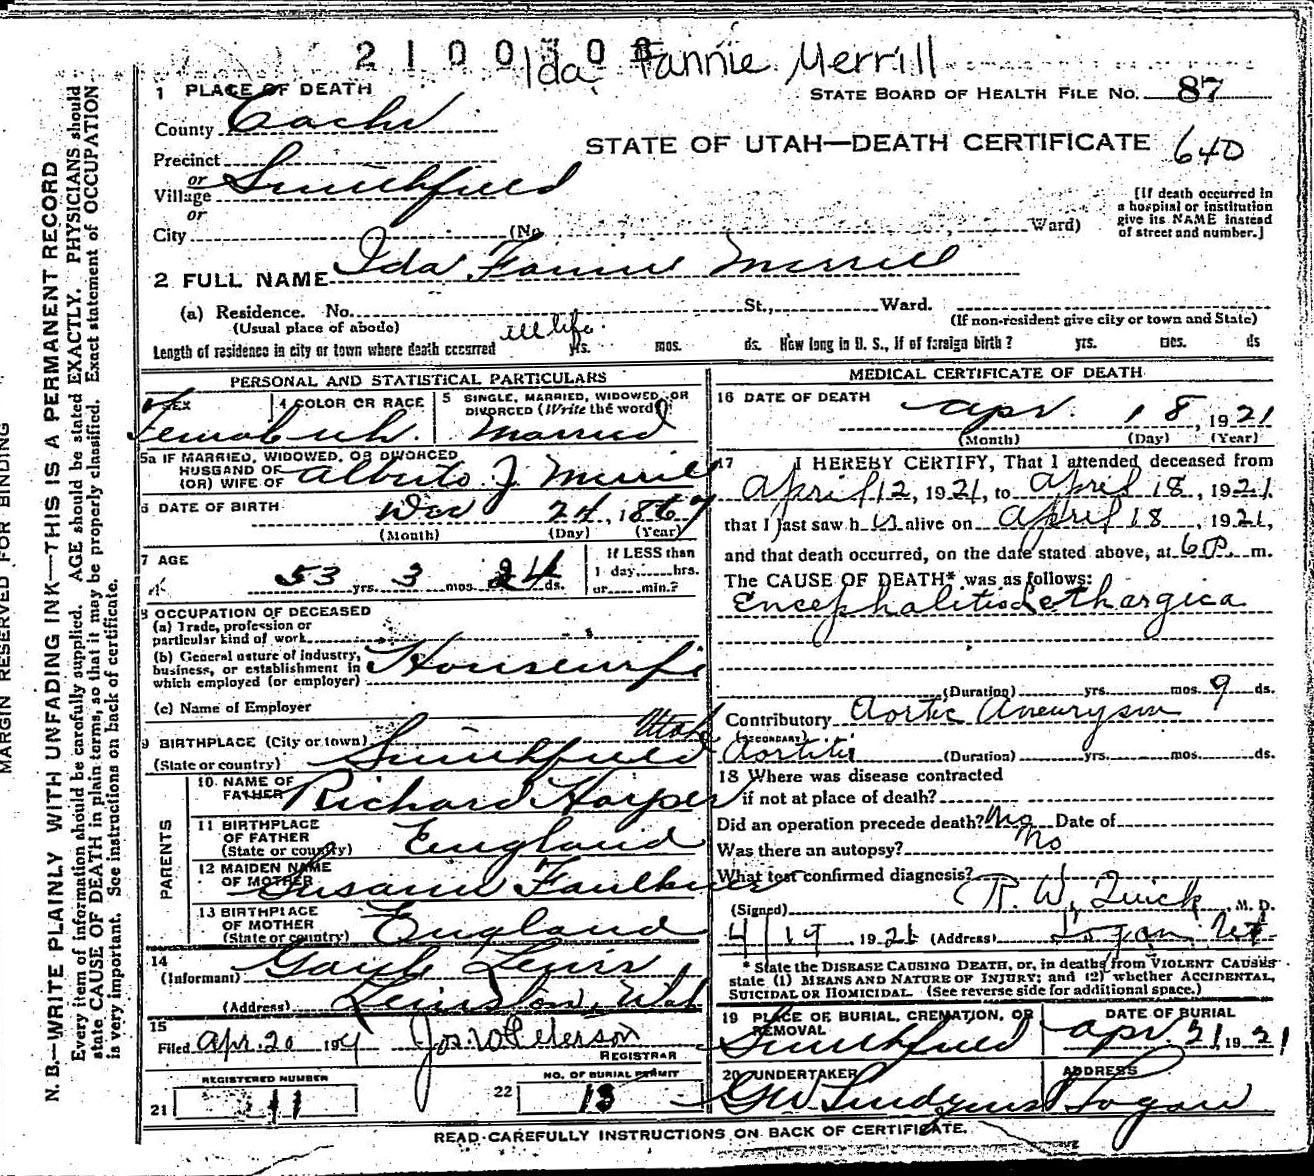 2 1 0 0
Ida Fannie Merrill
1 PLACE OF DEATH
STATE BOARD OF HEALTH FILE No. 87
County Cache
STATE OF UTAH—DEATH CERTIFICATE 640
Precinct
or
Village Smithfield
or
City (No. Ward)
[If death occurred in
a hospital or institution
give its NAME instead
of street and number.]
2 FULL NAME Ida Fannie Merrill
(a) Residence. No. St., Ward.
(Usual place of abode) (If non-resident give city or town and State)
Length of residence in city or town where death occurred all life. yrs. mos. ds. How long in U. S., if of foreign birth? yrs. mos. ds
PERSONAL AND STATISTICAL PARTICULARS
SEX Female
4 COLOR OR RACE wh.
5 SINGLE, MARRIED, WIDOWED, OR
DIVORCED (Write the word)
Married
5a IF MARRIED, WIDOWED, OR DIVORCED
HUSBAND OF
(OR) WIFE OF Alberto J Merrill
6 DATE OF BIRTH Dec 24, 1867
(Month) (Day) (Year)
7 AGE
53 yrs. 3 mos. 24 ds.
If LESS than
1 day,......hrs.
or......min.?
8 OCCUPATION OF DECEASED
(a) Trade, profession or
particular kind of work
(b) General nature of industry,
business, or establishment in
which employed (or employer) Housewife
(c) Name of Employer
9 BIRTHPLACE (City or town)
(State or country) Smithfield Utah
PARENTS
10 NAME OF
FATHER Richard Harper
11 BIRTHPLACE
OF FATHER
(State or country) England
12 MAIDEN NAME
OF MOTHER Susann Faulkner
13 BIRTHPLACE
OF MOTHER
(State or country) England
14
(Informant) Lewis
(Address) Lewiston, Utah
15
Filed Apr. 20 192 Jos. W Peterson
REGISTRAR
REGISTERED NUMBER
21 11
NO. OF BURIAL PERMIT
22 13
MEDICAL CERTIFICATE OF DEATH
16 DATE OF DEATH
apr. 18, 1921
(Month) (Day) (Year)
17 I HEREBY CERTIFY, That I attended deceased from
April 12, 1921, to April 18, 1921.
that I last saw h er alive on April 18, 1921,
and that death occurred, on the date stated above, at 6 P. m.
The CAUSE OF DEATH* was as follows:
Encephalitis Lethargica
(Duration) yrs. mos. 9 ds.
Contributory Aortic Aneurysm
(SECONDARY)
Aortitis (Duration) yrs. mos. ds.
18 Where was disease contracted
if not at place of death?
Did an operation precede death? No Date of
Was there an autopsy? No
What test confirmed diagnosis?
(Signed) R. W. Quick, M. D.
4/19 1921 (Address) Logan, Ut.
* State the DISEASE CAUSING DEATH, or, in deaths from VIOLENT CAUSES
state (1) MEANS AND NATURE OF INJURY; and (2) whether ACCIDENTAL,
SUICIDAL OR HOMICIDAL. (See reverse side for additional space.)
19 PLACE OF BURIAL, CREMATION, OR
REMOVAL
Smithfield
DATE OF BURIAL
apr. 21, 1921
20 UNDERTAKER
GW Lindquist
ADDRESS
Logan
READ CAREFULLY INSTRUCTIONS ON BACK OF CERTIFICATE.
MARGIN RESERVED FOR BINDING
N. B.—WRITE PLAINLY WITH UNFADING INK—THIS IS A PERMANENT RECORD
Every item of information should be carefully supplied. AGE should be stated EXACTLY. PHYSICIANS should
state CAUSE OF DEATH in plain terms, so that it may be properly classified. Exact statement of OCCUPATION
is very important. See instructions on back of certificate.